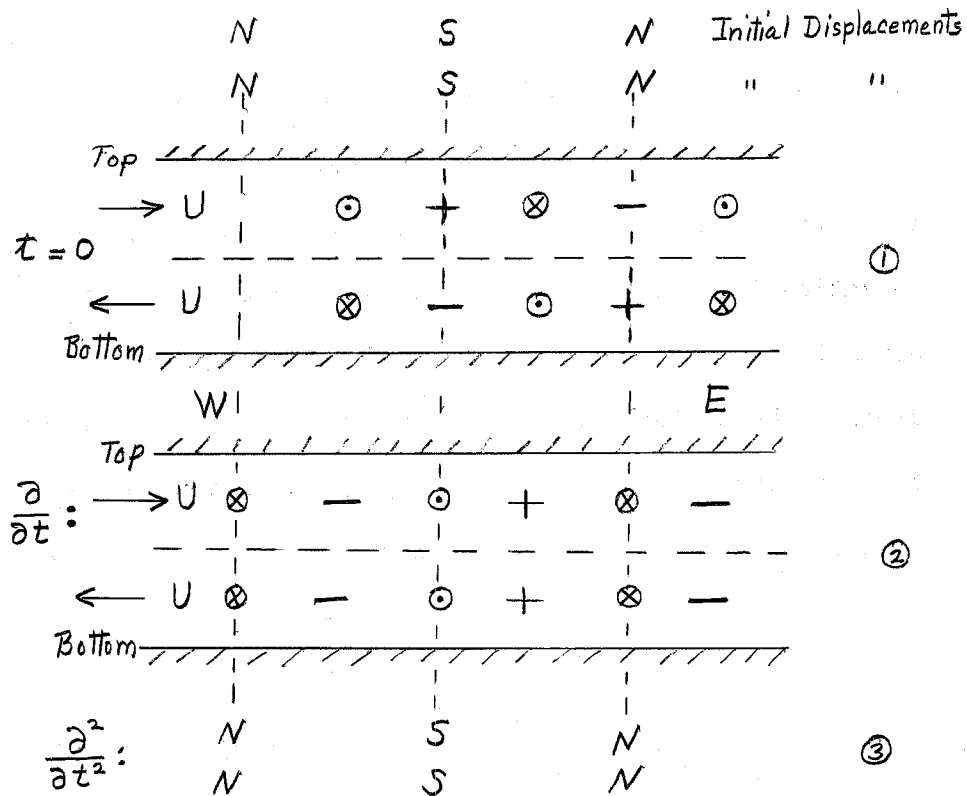 N S N Initial Displacements
N S N " "
Top
U ⊙ + ⊗ − ⊙
t = 0 ①
U ⊗ − ⊙ + ⊗
Bottom
W E
Top
U ⊗ − ⊙ + ⊗ −
∂/∂t : ②
U ⊗ − ⊙ + ⊗ −
Bottom
N S N
∂²/∂t² : ③
N S N